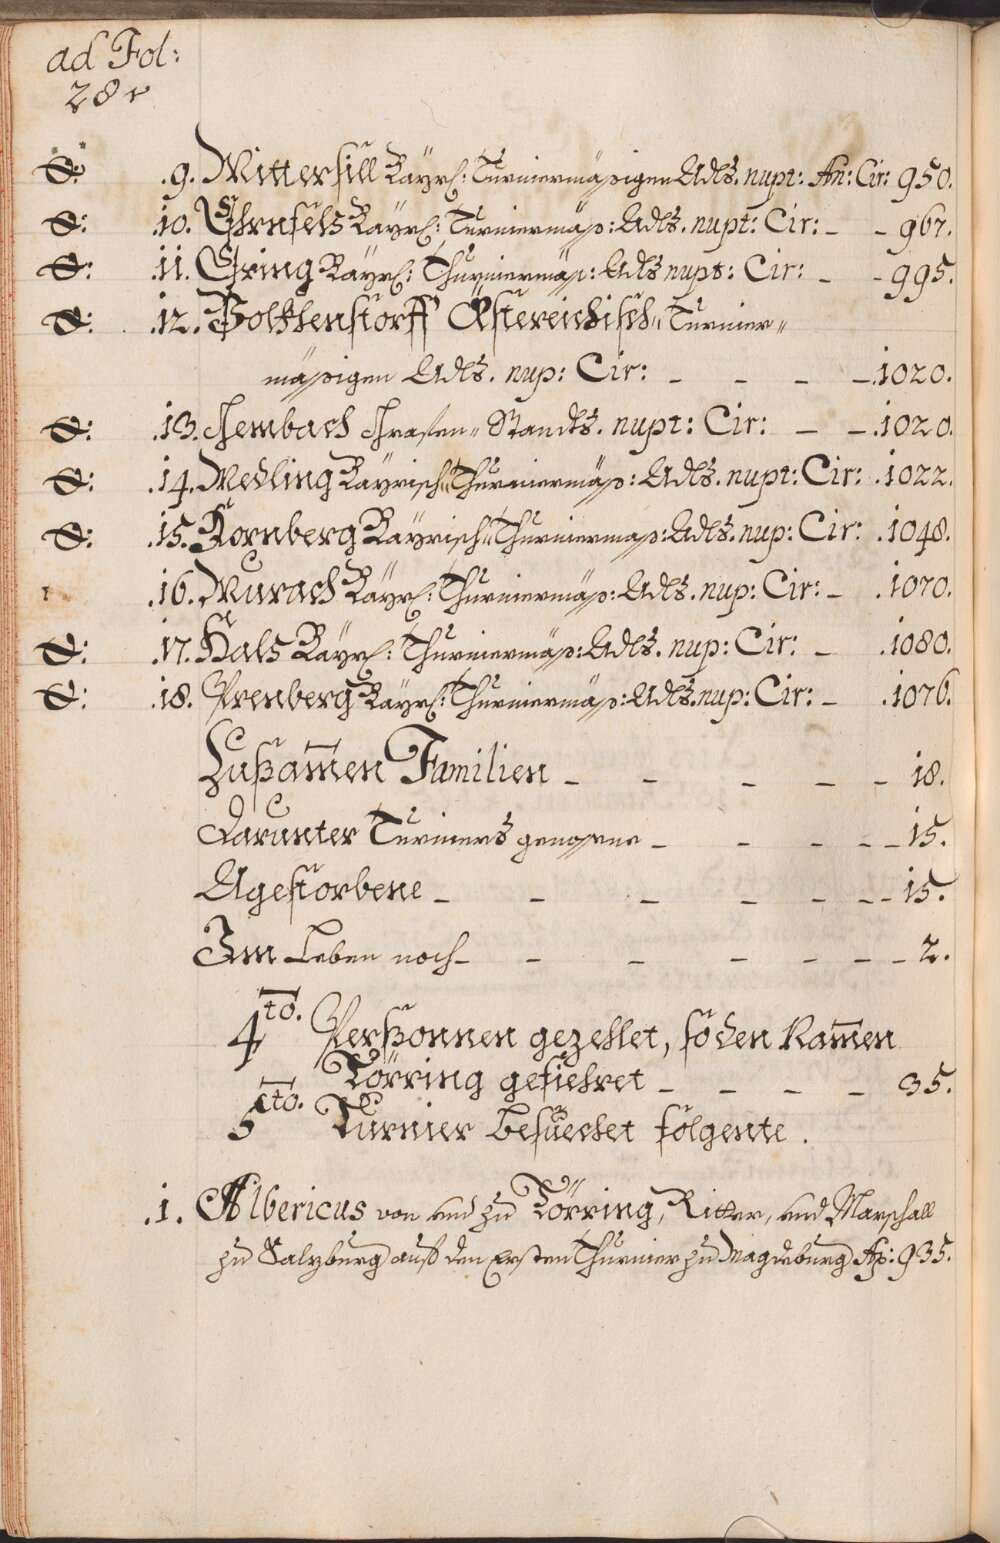 ad Fol:
28 r
.9. Mittersill Bayr: Turniermäßigen Adls. nupt: An: Cir: 950.
.10. Ehrnfels Bayr: Turniermäß: Adls. nupt: Cir: – – 967.
.11. Ering Bayr: Thurniermäß: Adls nupt: Cir: – – 995.
.12. Polkhenstorff Östereichisch Turnier„
mäßigen Adls. nup: Cir: – – – – .1020.
.13. Hembach Grafen„ Standts. nupt: Cir: – – .1020.
.14. Medling Bayrisch„ Thurniermäß: Adls. nupt: Cir: .1022.
.15. Kornberg Bayrisch„ Thurniermäß: Adls. nup: Cir: .1048.
.16. Murach Bayr: Thurniermäß: Adls. nup: Cir: – .1070.
.17. Hals Bayr: Thurniermäß: Adls. nup: Cir: – .1080.
.18. Prenberg Bayr: Thurniermäß: Adls. nup: Cir: – .1076.
Zußam̄en Familien – – – – – 18.
Darunter Turniers genoßene – – – – – 15.
Agestorbene – – – – – – – 15.
Im Leben noch – – – – – – – 2.
4to. Perßonnen gezehlet, so den Nam̄en
Törring gefiehret – – – – 35.
5to. Turnier besuechet folgente.
.1. Albericus von und zu Törring, Ritter, und Marschall
zu Salzburg auf den Ersten Thurnier zu Magdeburg Ao: 935.